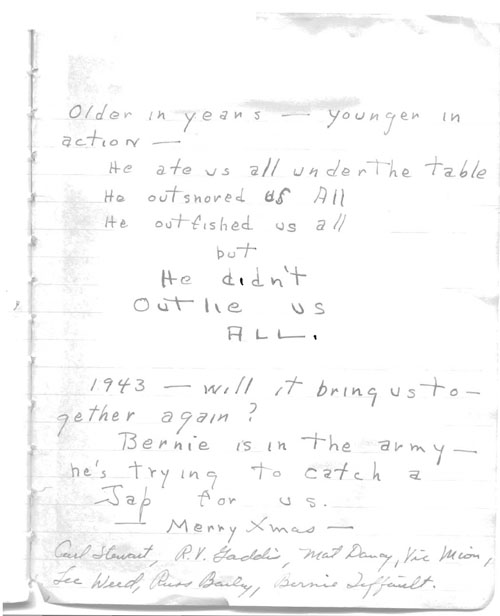 Older in years — younger in
action —
He ate us all under the table
He outsnored us All
He outfished us all
but
He didn't
Outlie us
ALL.
1943 — will it bring us to-
gether again?
Bernie is in the army —
he's trying to catch a
Jap for us.
— Merry Xmas —
Carl Stewart, R.V. Gaddis, Mat Dancy, Vic Mion,
Lee Weed, Russ Baily, Bernie